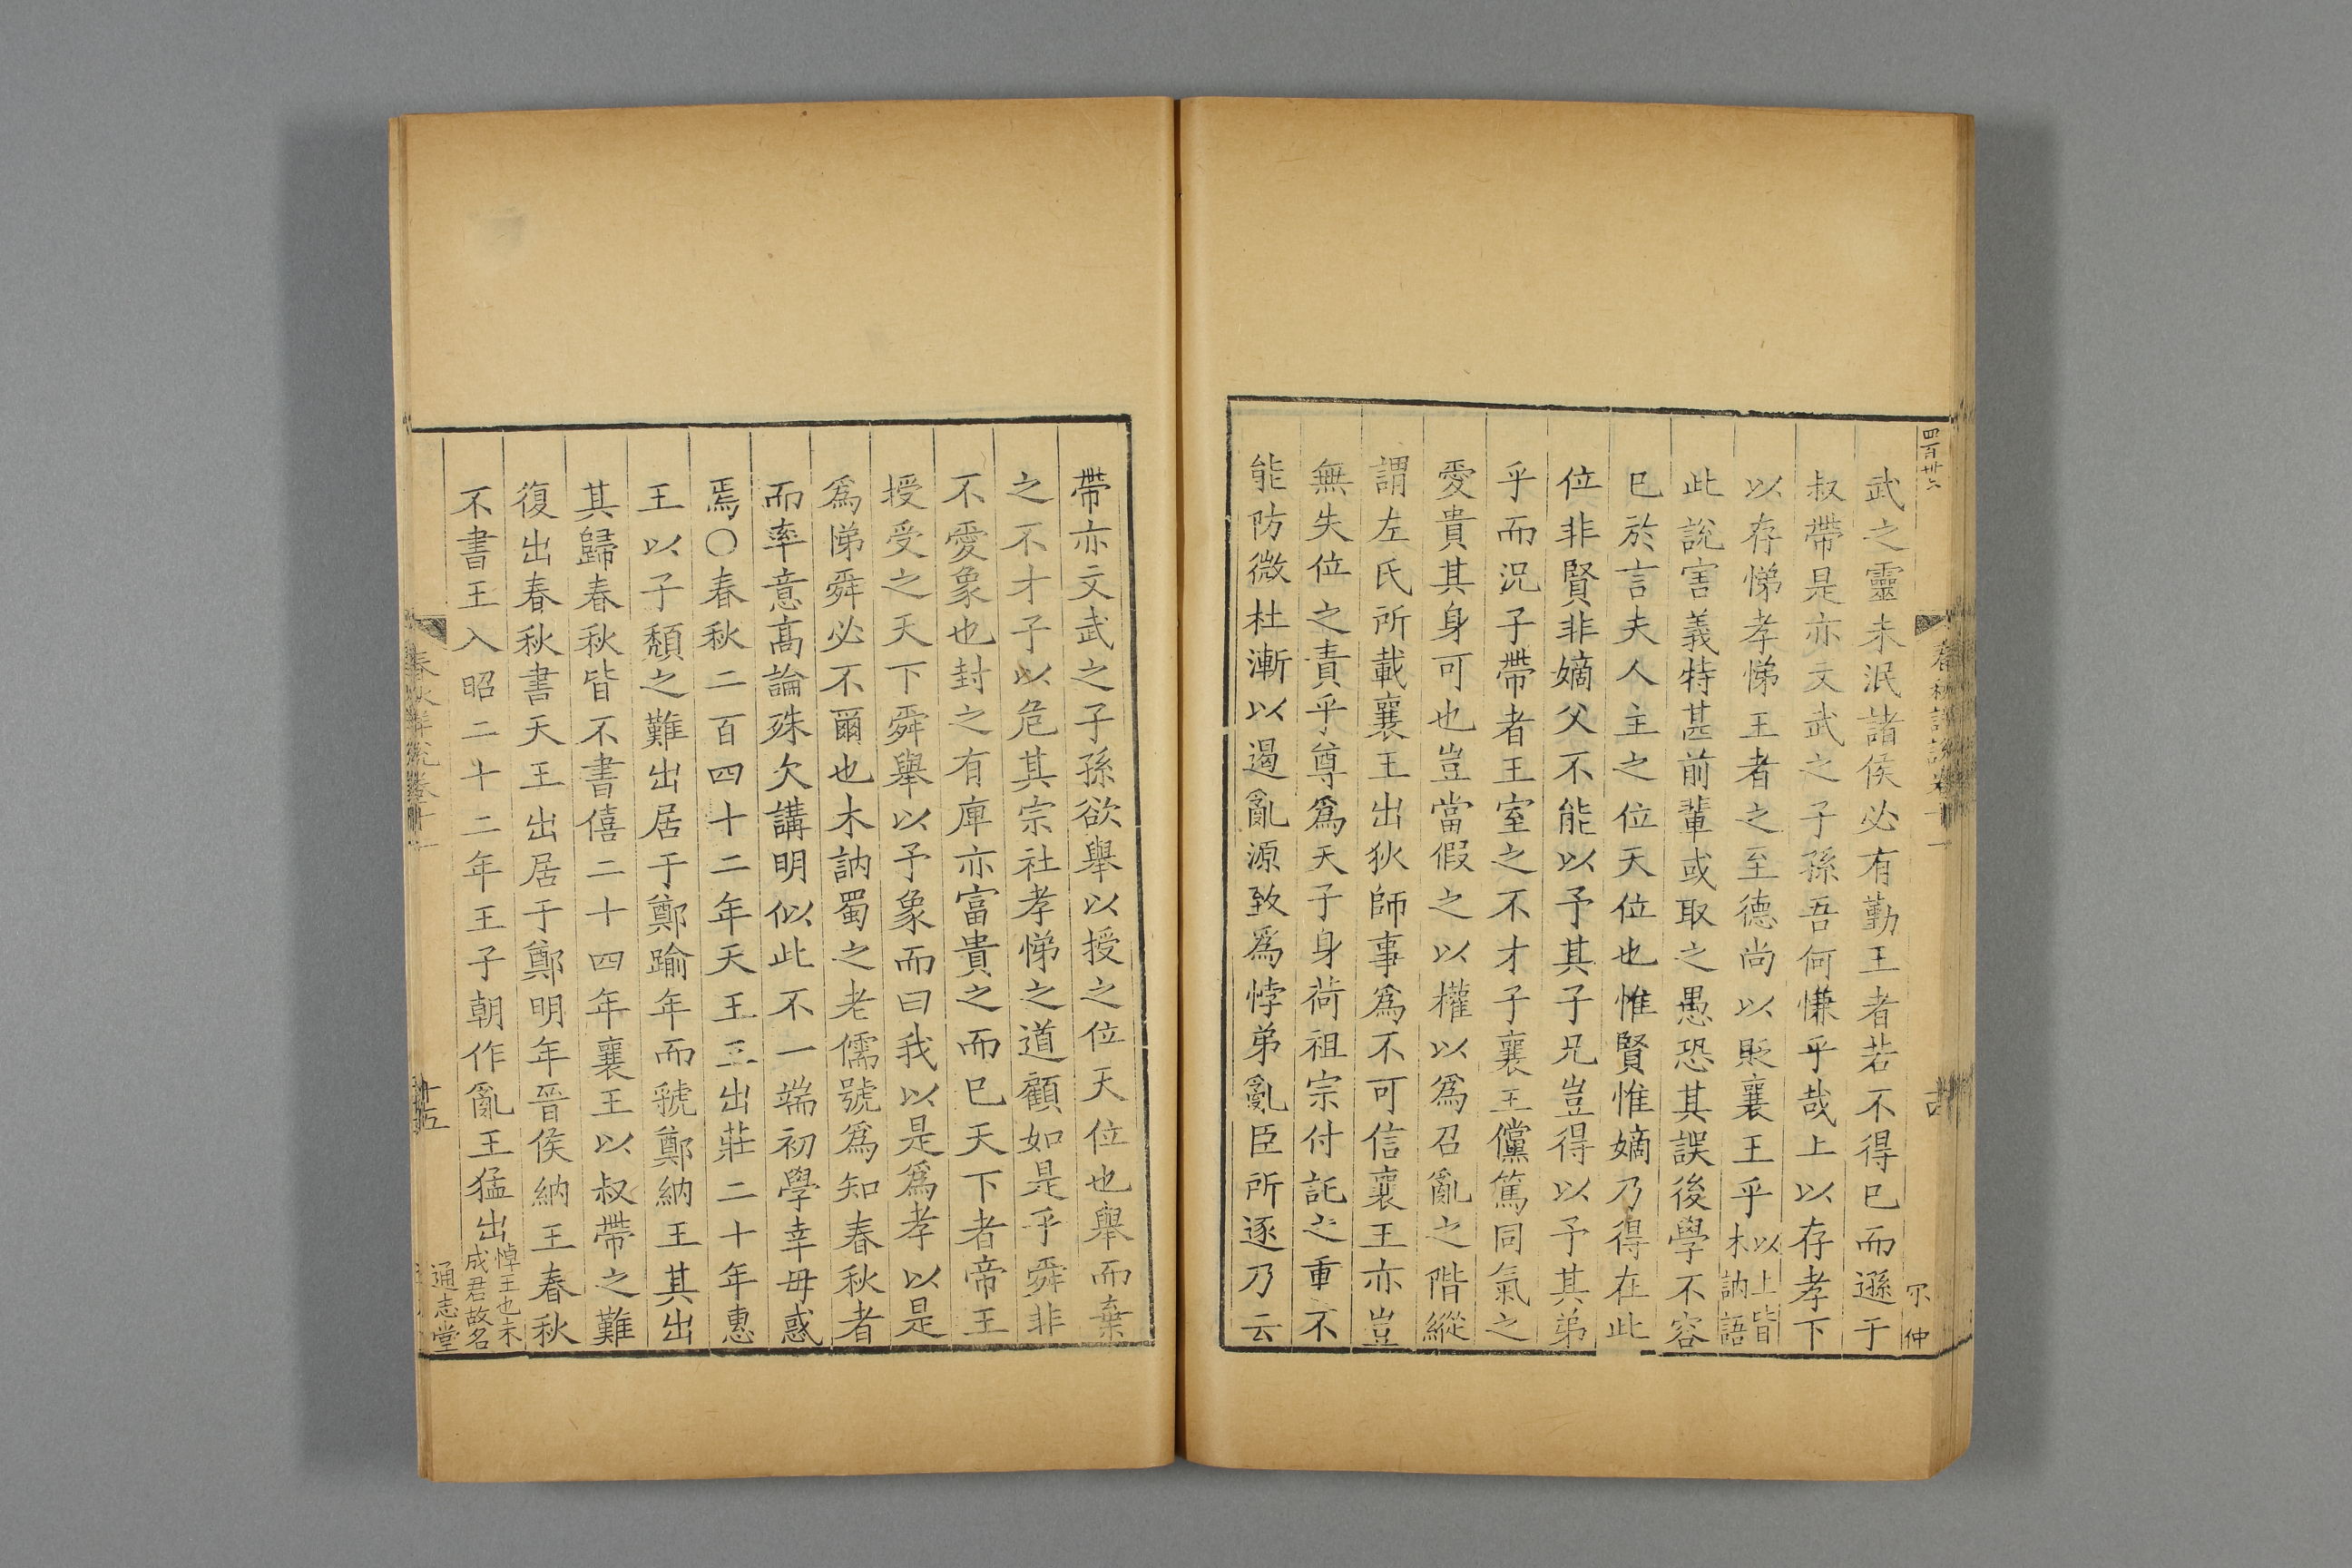 四百卅六
春秋詳說卷十一
十四
宗 仲
武之靈未泯諸侯必有勤王者若不得已而遜于
叔帶是亦文武之子孫吾何慊乎哉上以存孝下
以存悌孝悌王者之至德尚以貶襄王乎以上皆木訥語
此說害義特甚前輩或取之愚恐其誤後學不容
已於言夫人主之位天位也惟賢惟嫡乃得在此
位非賢非嫡父不能以予其子兄豈得以予其弟
乎而況子帶者王室之不才子襄王儻篤同氣之
愛貴其身可也豈當假之以權以爲召亂之階縱
謂左氏所載襄王出狄師事爲不可信襄王亦豈
無失位之責乎尊爲天子身荷祖宗付託之重不
能防微杜漸以遏亂源致爲悖弟亂臣所逐乃云
帶亦文武之子孫欲舉以授之位天位也舉而棄
之不才子以危其宗社孝悌之道顧如是乎舜非
不愛象也封之有庳亦富貴之而已天下者帝王
授受之天下舜舉以予象而曰我以是爲孝以是
爲悌舜必不爾也木訥蜀之老儒號爲知春秋者
而率意高論殊欠講明似此不一端初學幸毋惑
焉○春秋二百四十二年天王三出莊二十年惠
王以子頹之難出居于鄭踰年而虢鄭納王其出
其歸春秋皆不書僖二十四年襄王以叔帶之難
復出春秋書天王出居于鄭明年晉侯納王春秋
不書王入昭二十二年王子朝作亂王猛出悼王也未成君故名
春秋詳說卷十一
十五
通志堂